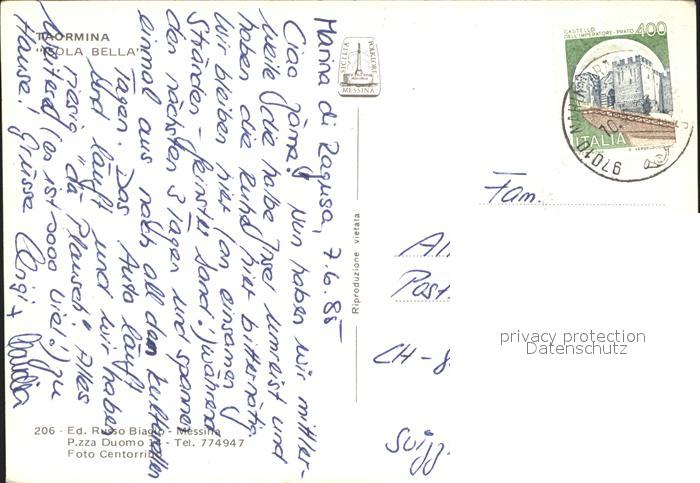 TAORMINA
"ISOLA BELLA"
Marina di Ragusa, 7.6.85
Ciao zäme! Nun haben wir mittler-
weile die halbe Insel umreist und
haben die Ruhe hier bitter nötig.
Wir bleiben hier (an einsamen
Stränden - feinster Sand!) während
den nächsten 3 Tagen und spannen
einmal aus nach all den kulturellen
Tagen. Das Auto läuft
und läuft und wir haben
riesig "dä Plausch". Alles
Weitere (es ist sooo viel!) zu
Hause! Grüsse
206 - Ed. Russo Biagio - Messina
P.zza Duomo - Tel. 774947
Foto Centorrino
Riproduzione vietata
SICILIA
FOLKLORE
MESSINA
CASTELLO
DELL'IMPERATORE - PRATO 400
ITALIA
97010 MARINA
Fam.
Post
CH-8
privacy protection
Datenschutz